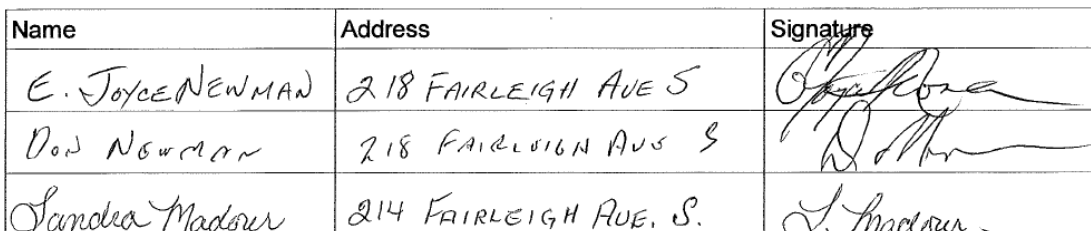 Name Address Signature
E. JOYCE NEWMAN 218 FAIRLEIGH AVE S
DON NEWMAN 218 FAIRLEIGH AVE S
Sandra Madour 214 FAIRLEIGH AVE. S. S. Madour